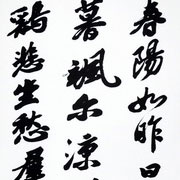 春陽如昨日
暮颯尓涼
鷄悲坐愁羣